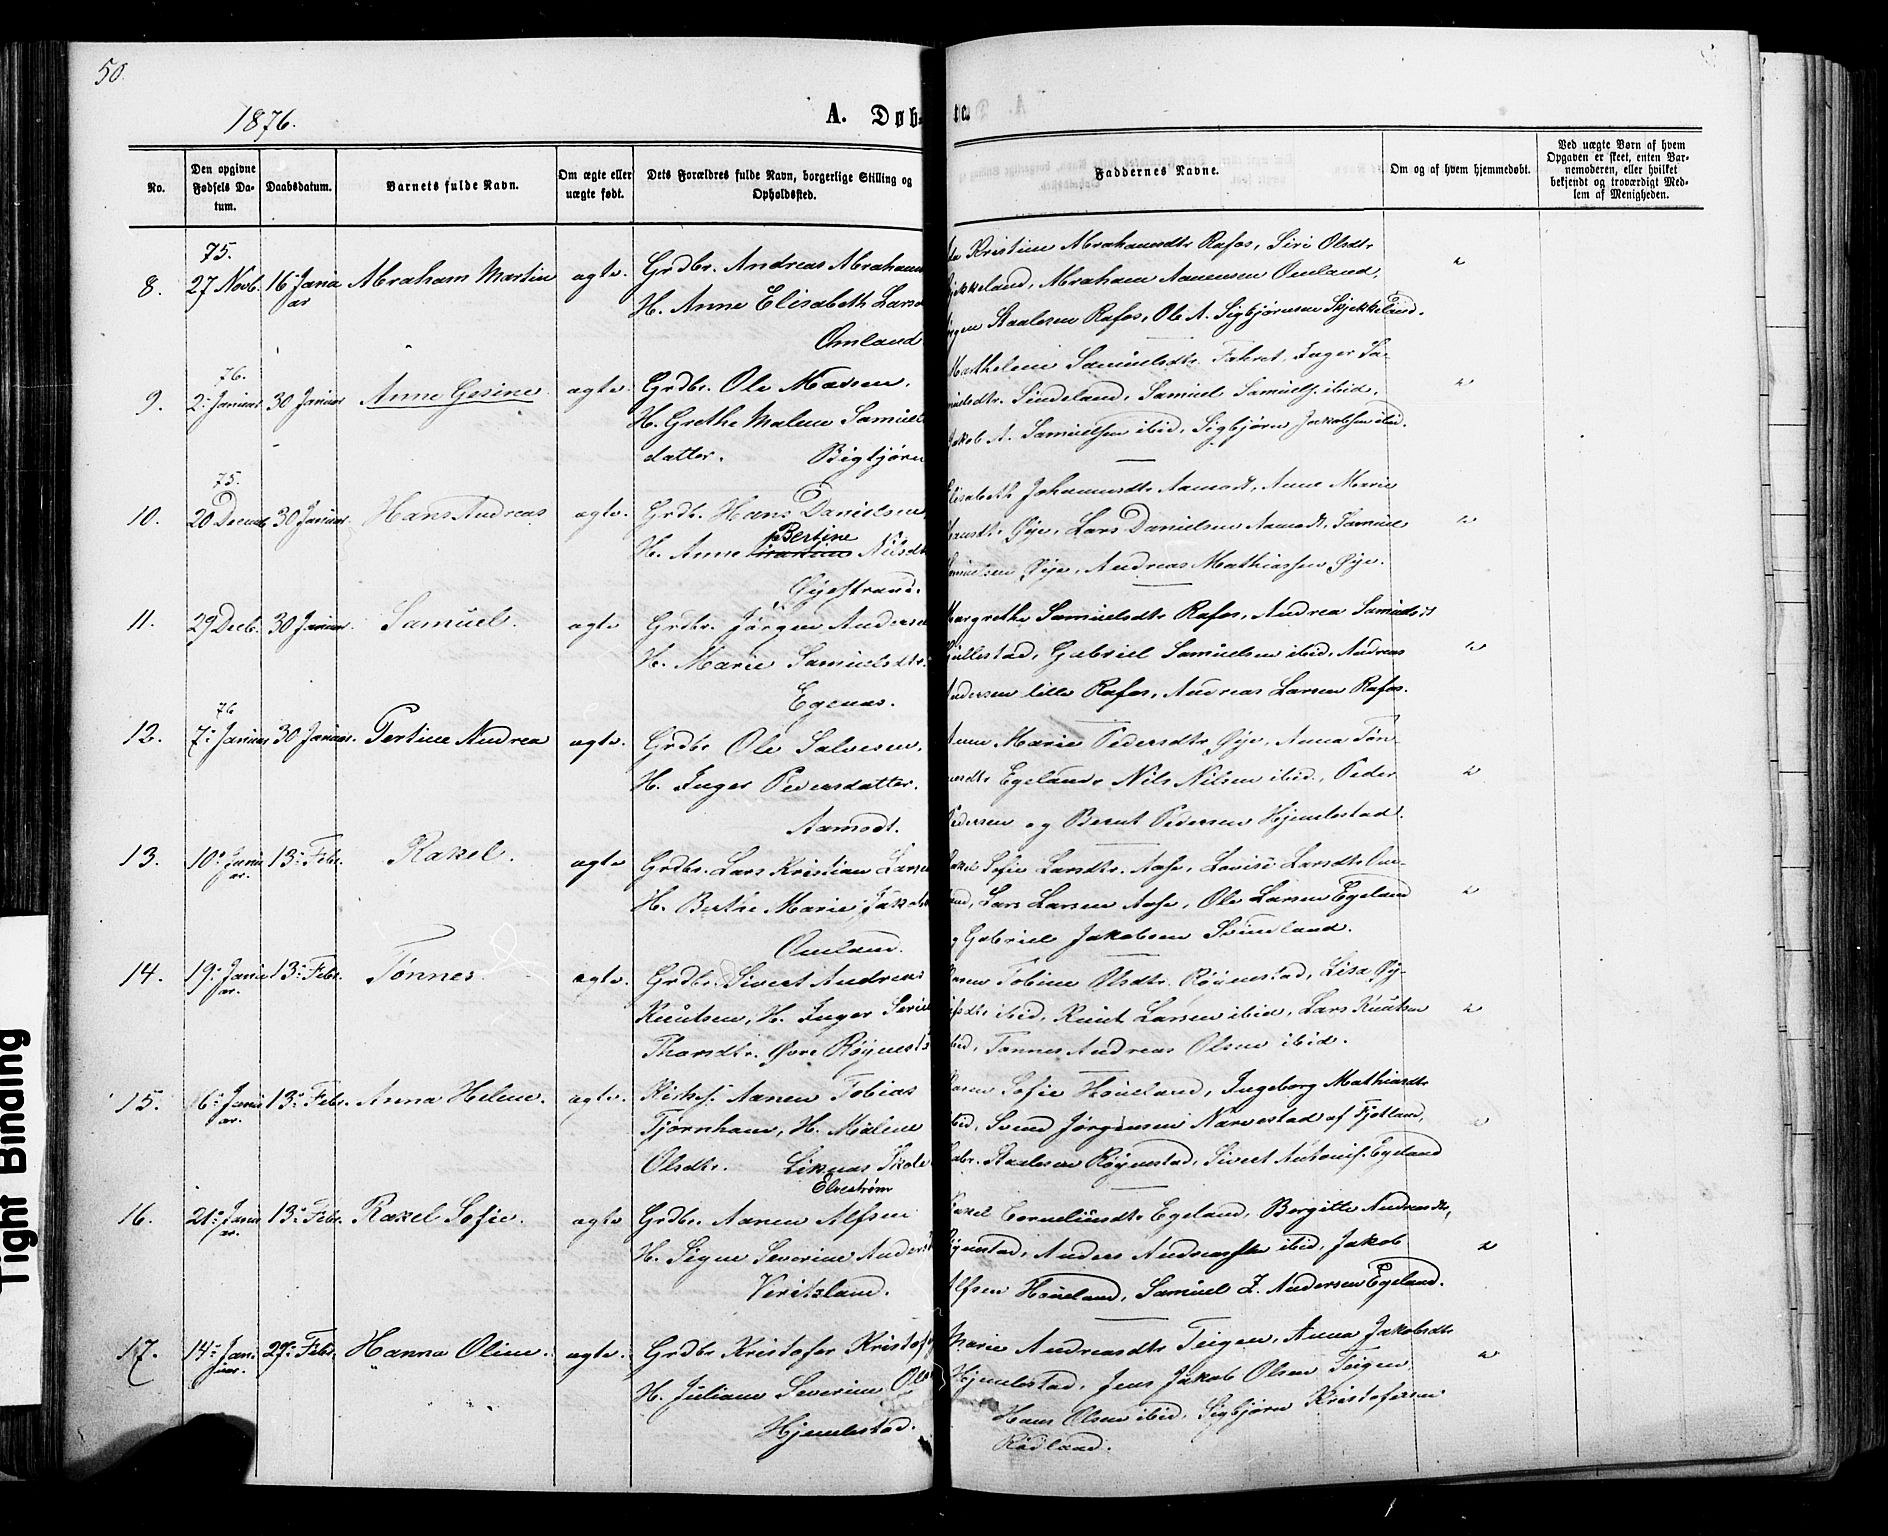 50.
1876.
A. Døb-
te.
No.
Den opgivne Fødsels Da-tum.
Daabsdatum.
Barnets fulde Navn.
Om ægte eller uægte født.
Dets Forældres fulde Navn, borgerlige Stilling og Opholdssted.
Faddernes Navne.
Om og af hvem hjemmedøbt.
Ved uægte Børn af hvem Opgaven er skeet, enten Bar-nemoderen, eller hvilket bekjendt og troværdigt Med-lem af Menigheden.
75.
8. 27 Novb. 16 Janu ar Abraham Martin ægte. Grdbr. Andreas Abraham
H. Anne Elisabeth Lars
Omland
Kristine Abrahamsdtr Rafos, Siri Olsdtr
Abraham Aanensen Omland,
Staalesen Rafos, Ole A. Sigbjørnsen Skjekkeland.
76.
9. 2: Januar 30 Januar Anne Gesine ægte. Grdbr. Ole Madsen.
H. Grethe Malene Samuels
datter. Bigtjørn
Mathelene Samuelsdtr. Inger Sa-
muelsdtr. Sindeland, Samuel Samuels. ibid,
Jakob A. Samuelsen ibid, Sigbjørn Jakobsen ibid.
75.
10. 20 Decemb 30 Januar. Hans Andreas ægte. Grdb. Hans Danielsen
Bertine
H. Anne Nilsdtr
Øyestrand.
Elisabeth Johannesdtr Aamodt, Anne Marie
Øye, Lars Danielsen Aamodt, Samuel
Samuelsen Øye, Andreas Mathiassen Øye.
11. 29 Decb. 30 Januar. Samuel. ægte Grdbr. Jørgen Andersen
H. Marie Samuelsdtr.
Egenæs.
Margrethe Samuelsdtr Rafos, Andrea Samuelsdt
Gullestad, Gabriel Samuelsen ibid, Andreas
Andersen lille Rafos, Andreas Larsen Rafos.
76
12. 7: Januar 30 Januar. Pertine Andrea ægte. Grdbr Ole Salvesen.
H. Inger Pedersdatter.
Aamodt.
Anne Marie Pedersdtr Øye, Anna Tøn-
nesdtr Egeland, Nils Nilsen ibid., Peder
Pedersen og Berent Pedersen Hjemlestad.
13. 10: Janu ar. 13: Febr. Rakel. ægte Grdbr. Lars Kristian Larsen
H. Berthe Marie Jakobs
Omland.
Rakel Sofie Larsdtr. Aase, Lovise Larsdtr Om-
land, Lars Larsen Aase, Ole Larsen Egeland
og Gabriel Jakobsen Svindland.
14. 19: Janu ar. 13: Febr. Tønnes. ægte. Grdbr. Sivert Andreas
Knutsen, H. Inger Serine
Thorsdtr. Øvre Røynest
Karen Tobine Olsdtr. Røynestad, Lisa Øy-
ibid, Knut Larsen ibid, Lars Knutsen
ibid, Tønnes Andreas Olsen ibid.
15. 16: Janu ar. 13: Febr. Anna Helene. ægte. Kirkes. Aanen Tobias
Tjørnhom, H. Malene
Olsdtr. Liknæs Skole
Karen Sofie Houeland, Ingeborg Mathiasdtr
ibid, Svend Jørgensen Narvestad af Fjotland,
Gabr. Staalesen Røynestad, Sivert Antonis. Egeland
Elvestrøm
16. 21: Janu ar. 13: Febr. Rakel Sofie. ægte Grdbr. Aanen Alfsen
H. Signe Severine Anders
Veritsland.
Rakel Corneliusdtr Egeland, Bergitte Andreasdtr,
Røynestad, Anders ibid, Jakob
Alfsen Houeland, Samuel Z. Andersen Egeland.
17. 14: Janu uar. 27: Febr. Hanna Oline. ægte. Grdbr Kristofer Kristof
H. Juliane Severine Ols
Hjemlestad.
Marie Andreasdtr Teigen, Anna Jakobsdtr
Hjemlestad, Jens Jakob Olsen Teigen
Hans Olsen ibid, Sigbjørn Kristofersen
Rødland.
Tight Binding